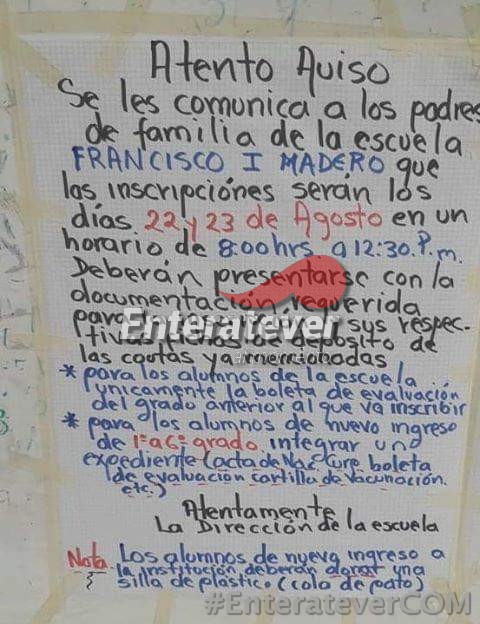 Atento Aviso
Se les comunica a los padres
de familia de la escuela
FRANCISCO I MADERO que
las inscripciónes serán los
días 22 y 23 de Agosto en un
horario de 8:00hrs a 12:30.P.m.
Deberán presentarse con la
documentación requerida
para sus respec-
tivas de deposito de
las coutas ya mencionadas
Enteratever
* para los alumnos de la escuela
unicamente la boleta de evaluación
del grado anterior al que va inscribir
* para los alumnos de nuevo ingreso
de 1° a 6° grado. integrar uno
expediente (acta de Nac. Curp boleta
de evaluación cartilla de vacunación.
etc.)
Atentamente
La Dirección de la escuela
Nota. Los alumnos de nuevo ingreso a
la institución deberán donar una
silla de plástico (colo de pato)
#EnterateverCOM